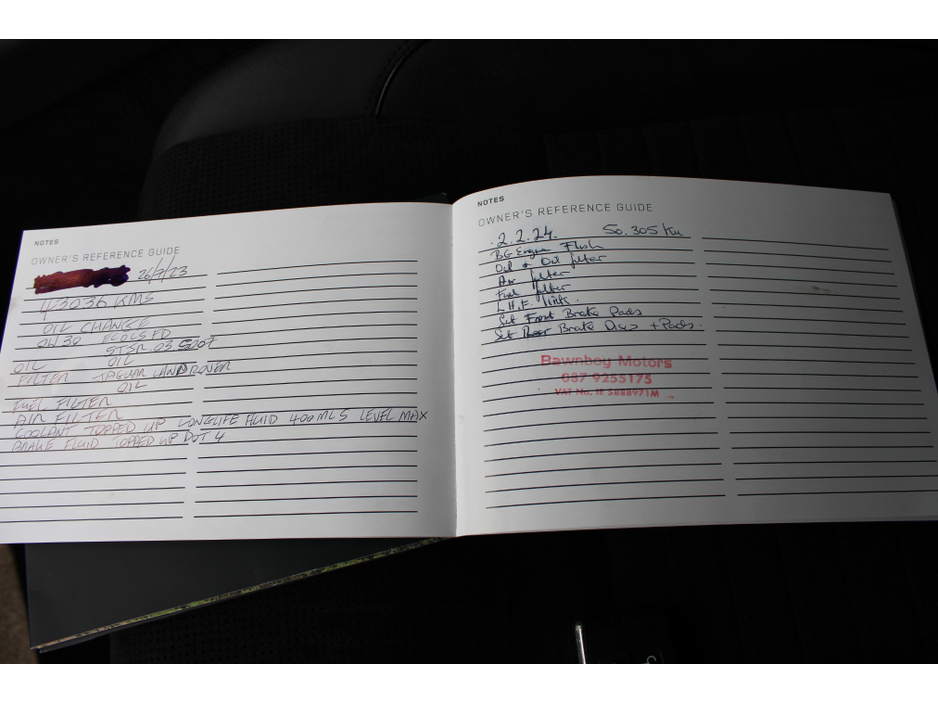 NOTES
OWNER'S REFERENCE GUIDE
26/7/23
43036 KMS
OIL CHANGE
0W30 ECOLS FD
STSR.03.5007
OIL OIL
FILTER JAGUAR LANDROVER
OIL
FUEL FILTER
AIR FILTER
COOLANT TOPPED UP LONGLIFE FLUID 400MLS LEVEL MAX
BRAKE FLUID TOPPED UP DOT 4
NOTES
OWNER'S REFERENCE GUIDE
2.2.24. 50.305 Km
BG Engine Flush
Oil + Oil filter
Air filter
Fuel filter
L.H.F link.
Set Front Brake Pads
Set Rear Brake Discs + Pads.
Bawnboy Motors
087 9255175
VAT No. IE 5888971M